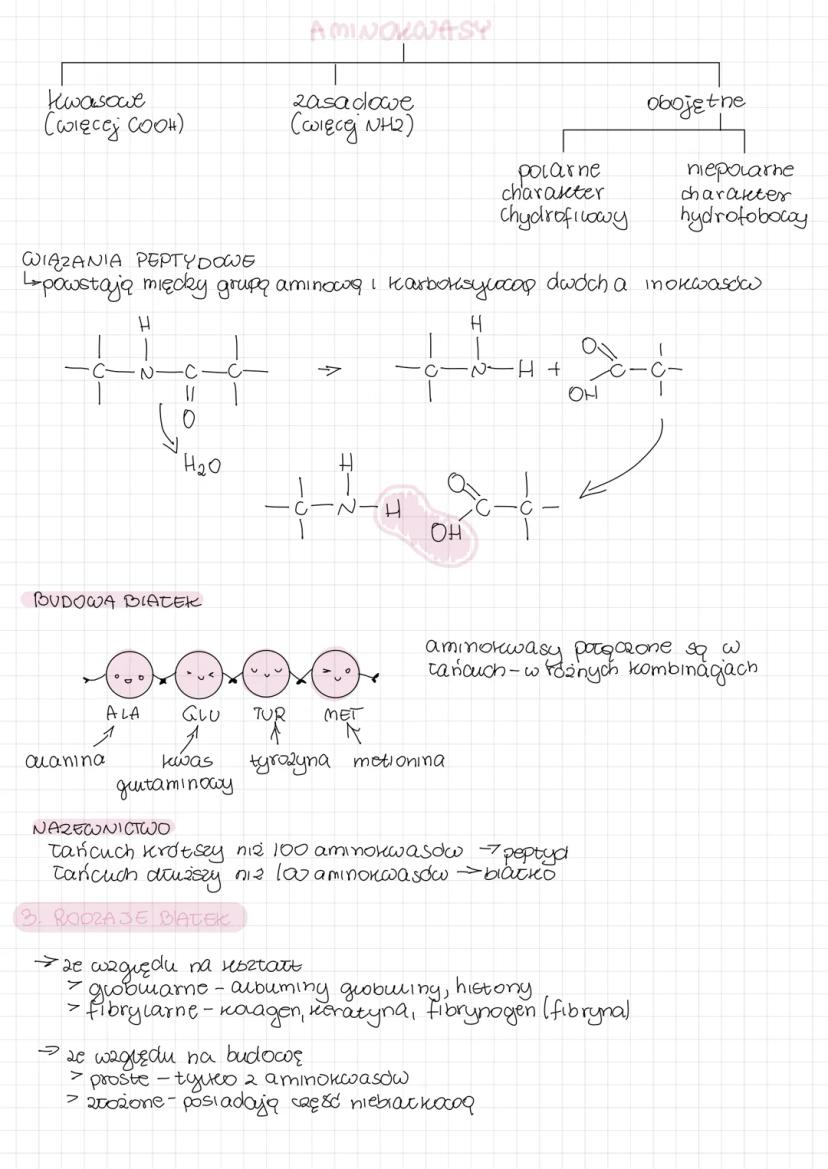 AMINOKWASY
kwasowe zasadowe obojętne
(więcej COOH) (więcej NH2)
polarne niepolarne
charakter charakter
chydrofilowy hydrofobowy
WIĄZANIA PEPTYDOWE
↳powstają między grupą aminową i karboksylową dwóch a inokwasów
H H
O
—C—N—C—C— → —C—N—H + C—C—
O OH
H2O H
O
—C—N—H C—C—
OH
BUDOWA BIAŁEK
aminokwasy połączone są w
łańcuch-w różnych kombinacjach
ALA GLU TUR MET
alanina kwas tyrozyna metionina
glutaminowy
NAZEWNICTWO
łańcuch krótszy niż 100 aminokwasów → peptyd
łańcuch dłuższy niż 100 aminokwasów → białko
3. RODZAJE BIAŁEK
→ ze względu na kształt
> globularne - albuminy globuliny, histony
> fibrylarne - kolagen, keratyna, fibrynogen (fibryna)
→ ze względu na budowę
> proste - tylko z aminokwasów
> złożone - posiadają część niebiałkową